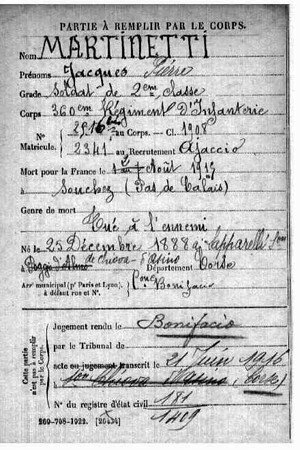 PARTIE À REMPLIR PAR LE CORPS.
Nom MARTINETTI
Prénoms Jacques Pierre
Grade Soldat de 2eme classe
Corps 360em Régiment D'Infanterie
N° au Corps. — Cl. 1908
Matricule. 2341 au Recrutement Ajaccio
Mort pour la France le Août 1915
à Souchez (Pas de Calais)
Genre de mort
Tué à l'ennemi
Né le 25 Décembre 1888
à Département Corse
Arr municipal (pr Paris et Lyon),
à défaut rue et N°. Bonifacio
Cette partie
n'est pas à remplir
par le Corps.
Jugement rendu le Bonifacio
par le Tribunal de
acte ou jugement transcrit le 21 Juin 1916
à
N° du registre d'état civil 181
1409
269-708-1922. [26434]